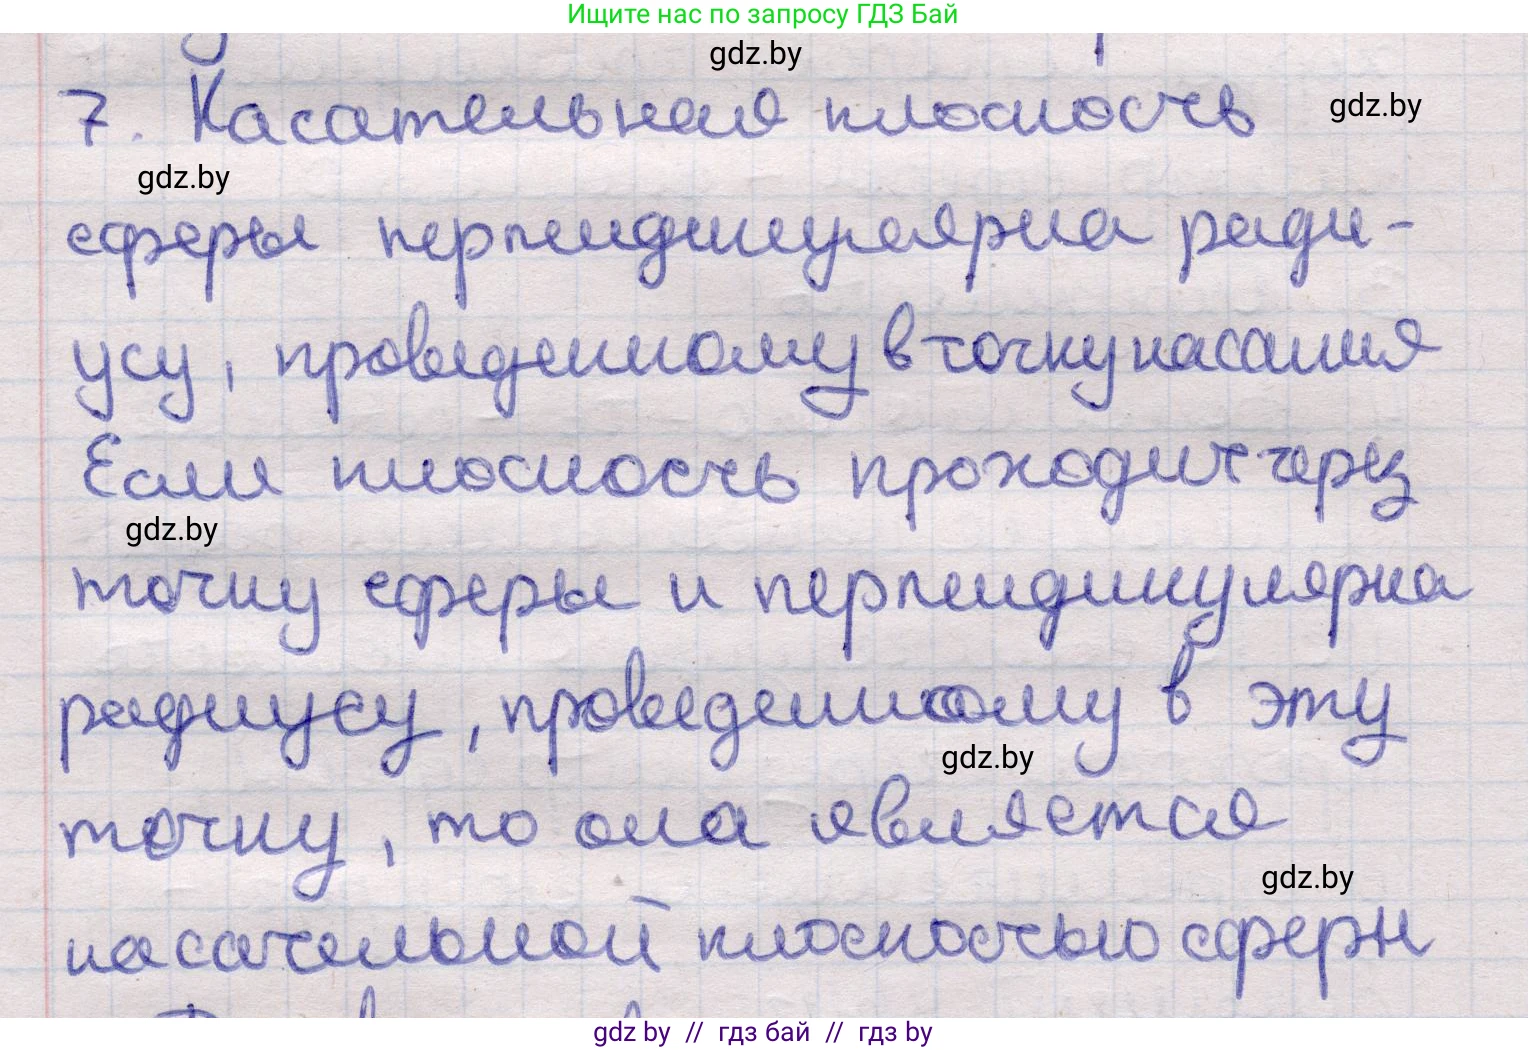 Ищите нас по запросу ГДЗ Бай
gdz.by
7. Касательная плоскость
gdz.by
gdz.by
сферы перпендикулярна ради-
усу, проведенному в точку касания
Если плоскость проходит через
gdz.by
точку сферы и перпендикулярна
радиусу, проведенному в эту
gdz.by
точку, то она является
gdz.by
касательной плоскостью сферы
gdz by // гдз бай // гдз by